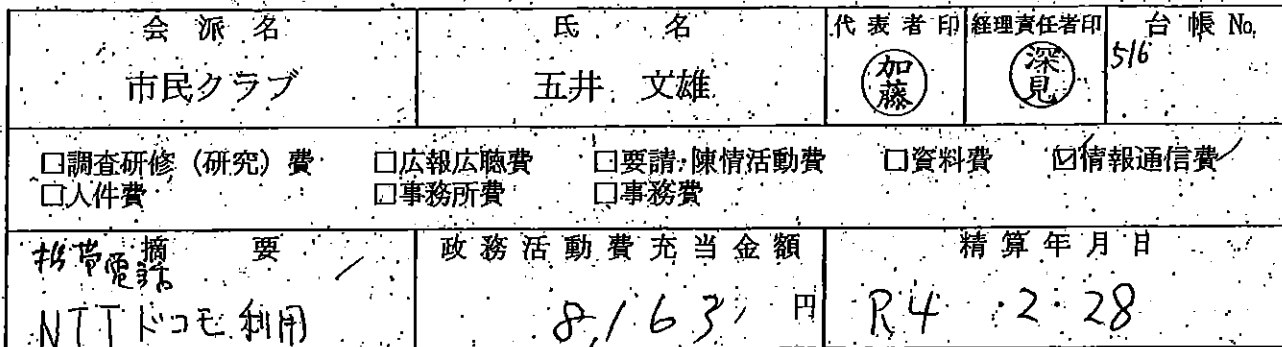 会派名 氏名 代表者印 経理責任者印 台帳No.
市民クラブ 五井 文雄 加藤 深見 516
□調査研修（研究）費 □広報広聴費 □要請・陳情活動費 □資料費 ☑情報通信費
□人件費 □事務所費 □事務費
摘要 政務活動費充当金額 精算年月日
携帯電話
NTTドコモ利用 8,163円 R4・2・28